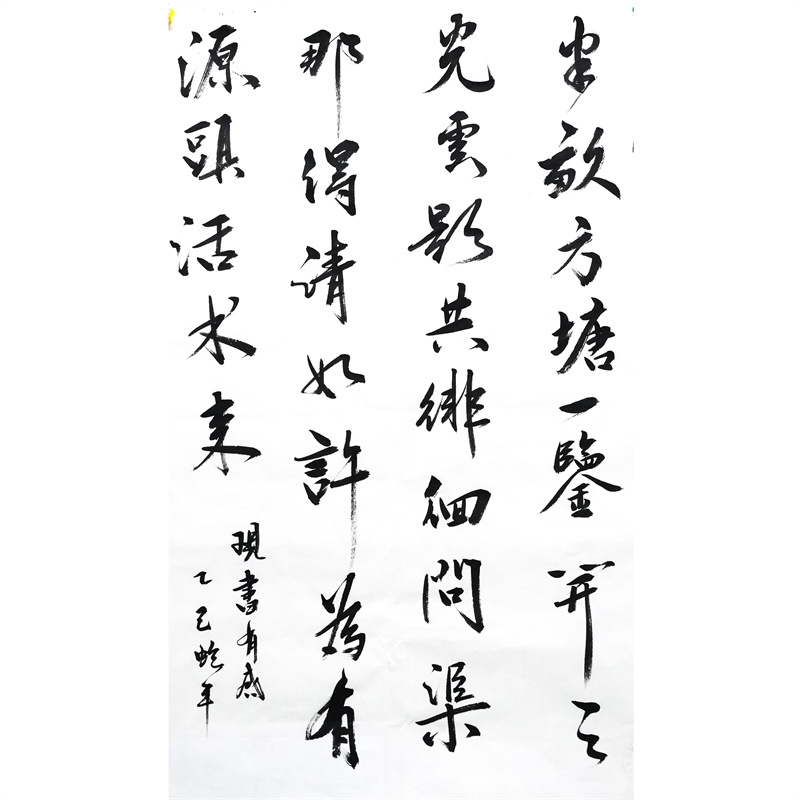 半畝方塘一鑒開天
光雲影共徘徊問渠
那得清如許為有
源頭活水来
現書有感
乙巳蛇年